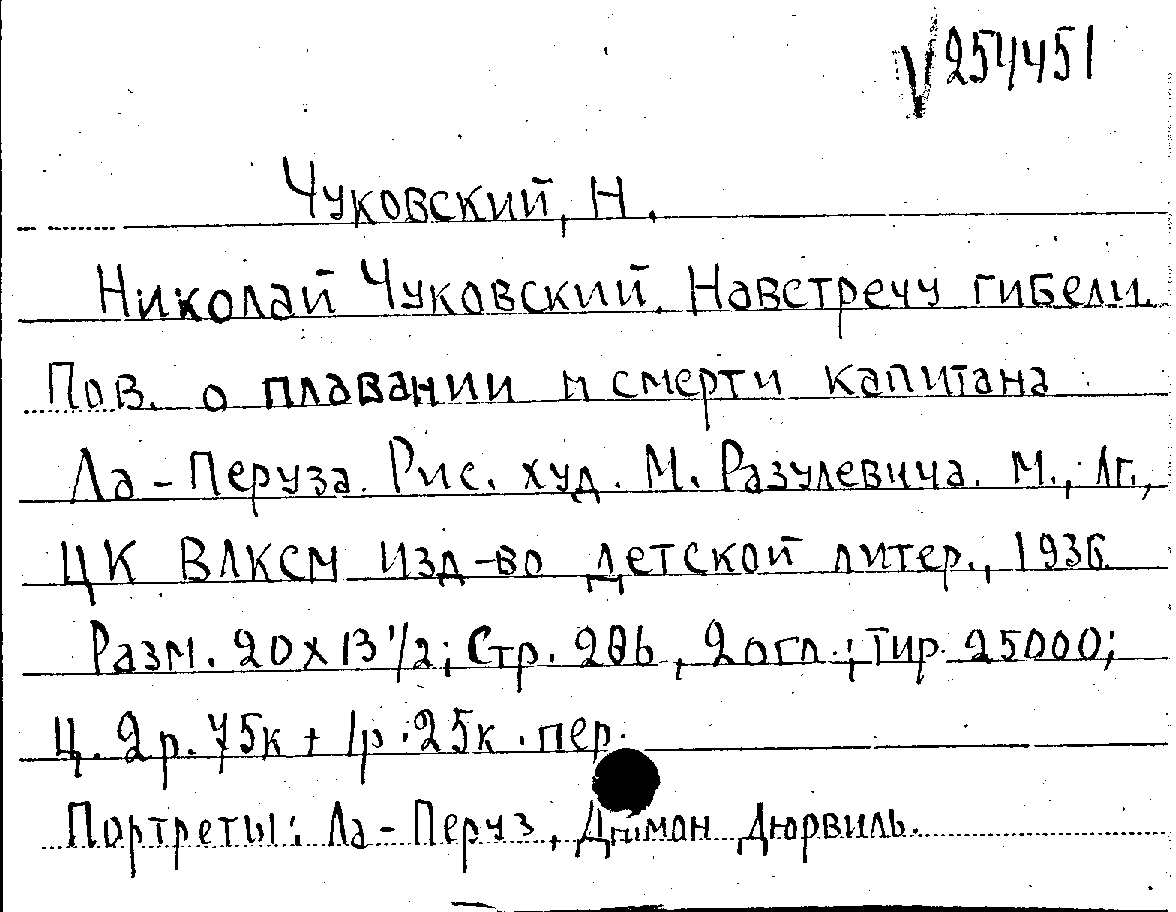 V 254451
Чуковский, Н.
Николай Чуковский. Навстречу гибели.
Пов. о плавании и смерти капитана
Ла-Перуза. Рис. худ. М. Разулевича. М., Лг.,
ЦК ВЛКСМ Изд-во детской литер., 1936.
Разм. 20 х 13 1/2; Стр. 206, 2 огл.; Тир. 25000;
Ц. 2 р. 75к + 1р. 25к. пер.
Портреты: Ла-Перуз, Дюмон Дюрвиль.